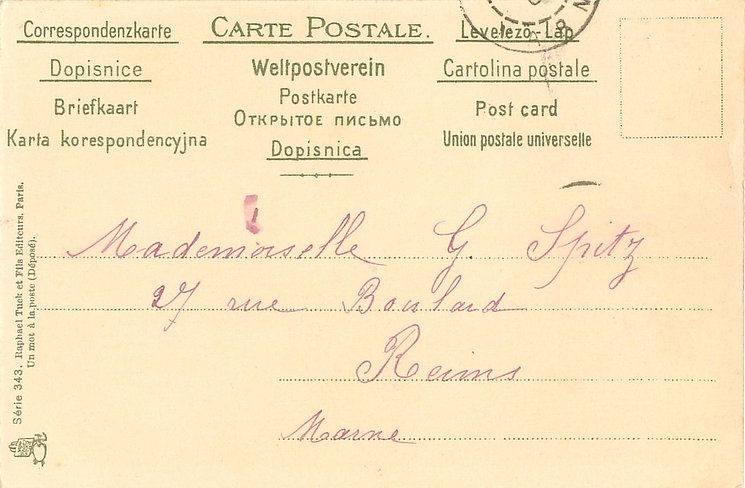 Correspondenzkarte
Dopisnice
Briefkaart
Karta korespondencyjna
CARTE POSTALE.
Weltpostverein
Postkarte
Открытое письмо
Dopisnica
Levelezo-Lap
Cartolina postale
Post card
Union postale universelle
Série 343. Raphael Tuck et Fils Editeurs, Paris.
Un mot à la poste (Déposé).
Mademoiselle G. Spitz
27 rue Boulard
Reims
Marne